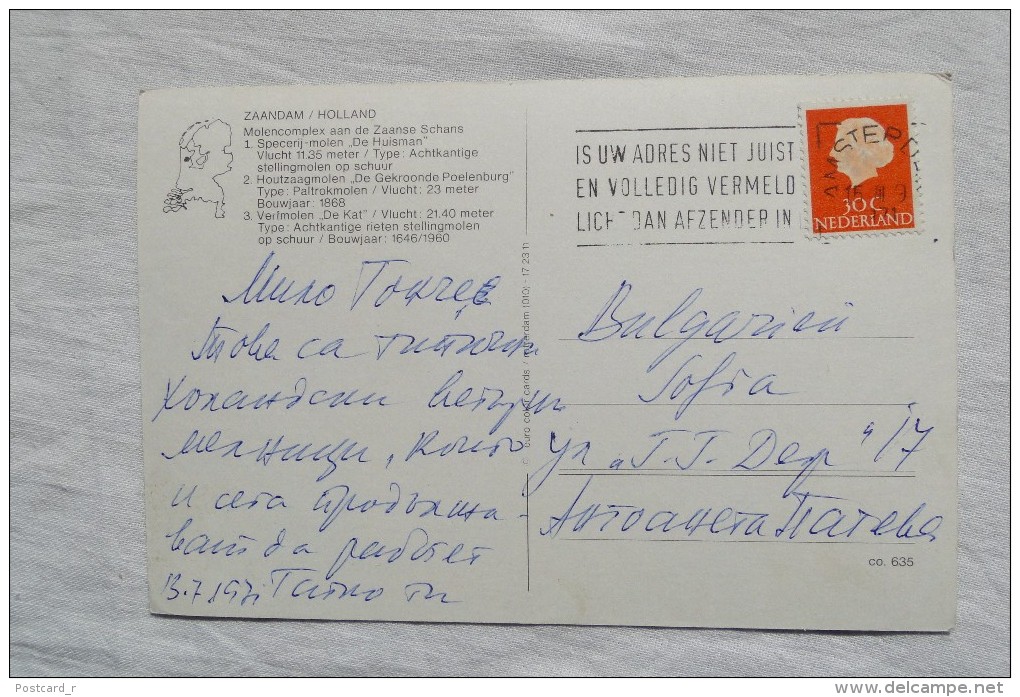 ZAANDAM / HOLLAND
Molencomplex aan de Zaanse Schans
1. Specerij-molen „De Huisman"
Vlucht 11.35 meter / Type: Achtkantige
stellingmolen op schuur
2. Houtzaagmolen „De Gekroonde Poelenburg"
Type: Paltrokmolen / Vlucht: 23 meter
Bouwjaar: 1868
3. Verfmolen „De Kat" / Vlucht: 21.40 meter
Type: Achtkantige rieten stellingmolen
op schuur / Bouwjaar: 1646/1960
Мило
Това са типични
холандски ветърни
мелници, които
и сега продължа-
ват да работят
13.7.1971 Татко ти
euro color cards / (010) - 17 23 11
IS UW ADRES NIET JUIST
EN VOLLEDIG VERMELD
LICHT DAN AFZENDER IN
AMSTERDAM
30 C
NEDERLAND
Bulgarien
Sofia
ул „Г. Г. Деж“ 17
Антоанета Патева
co. 635
Postcard_r
www.delcampe.net